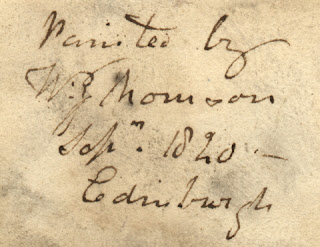 Painted by
W. J. Thomson
Sepr. 1820 —
Edinburgh